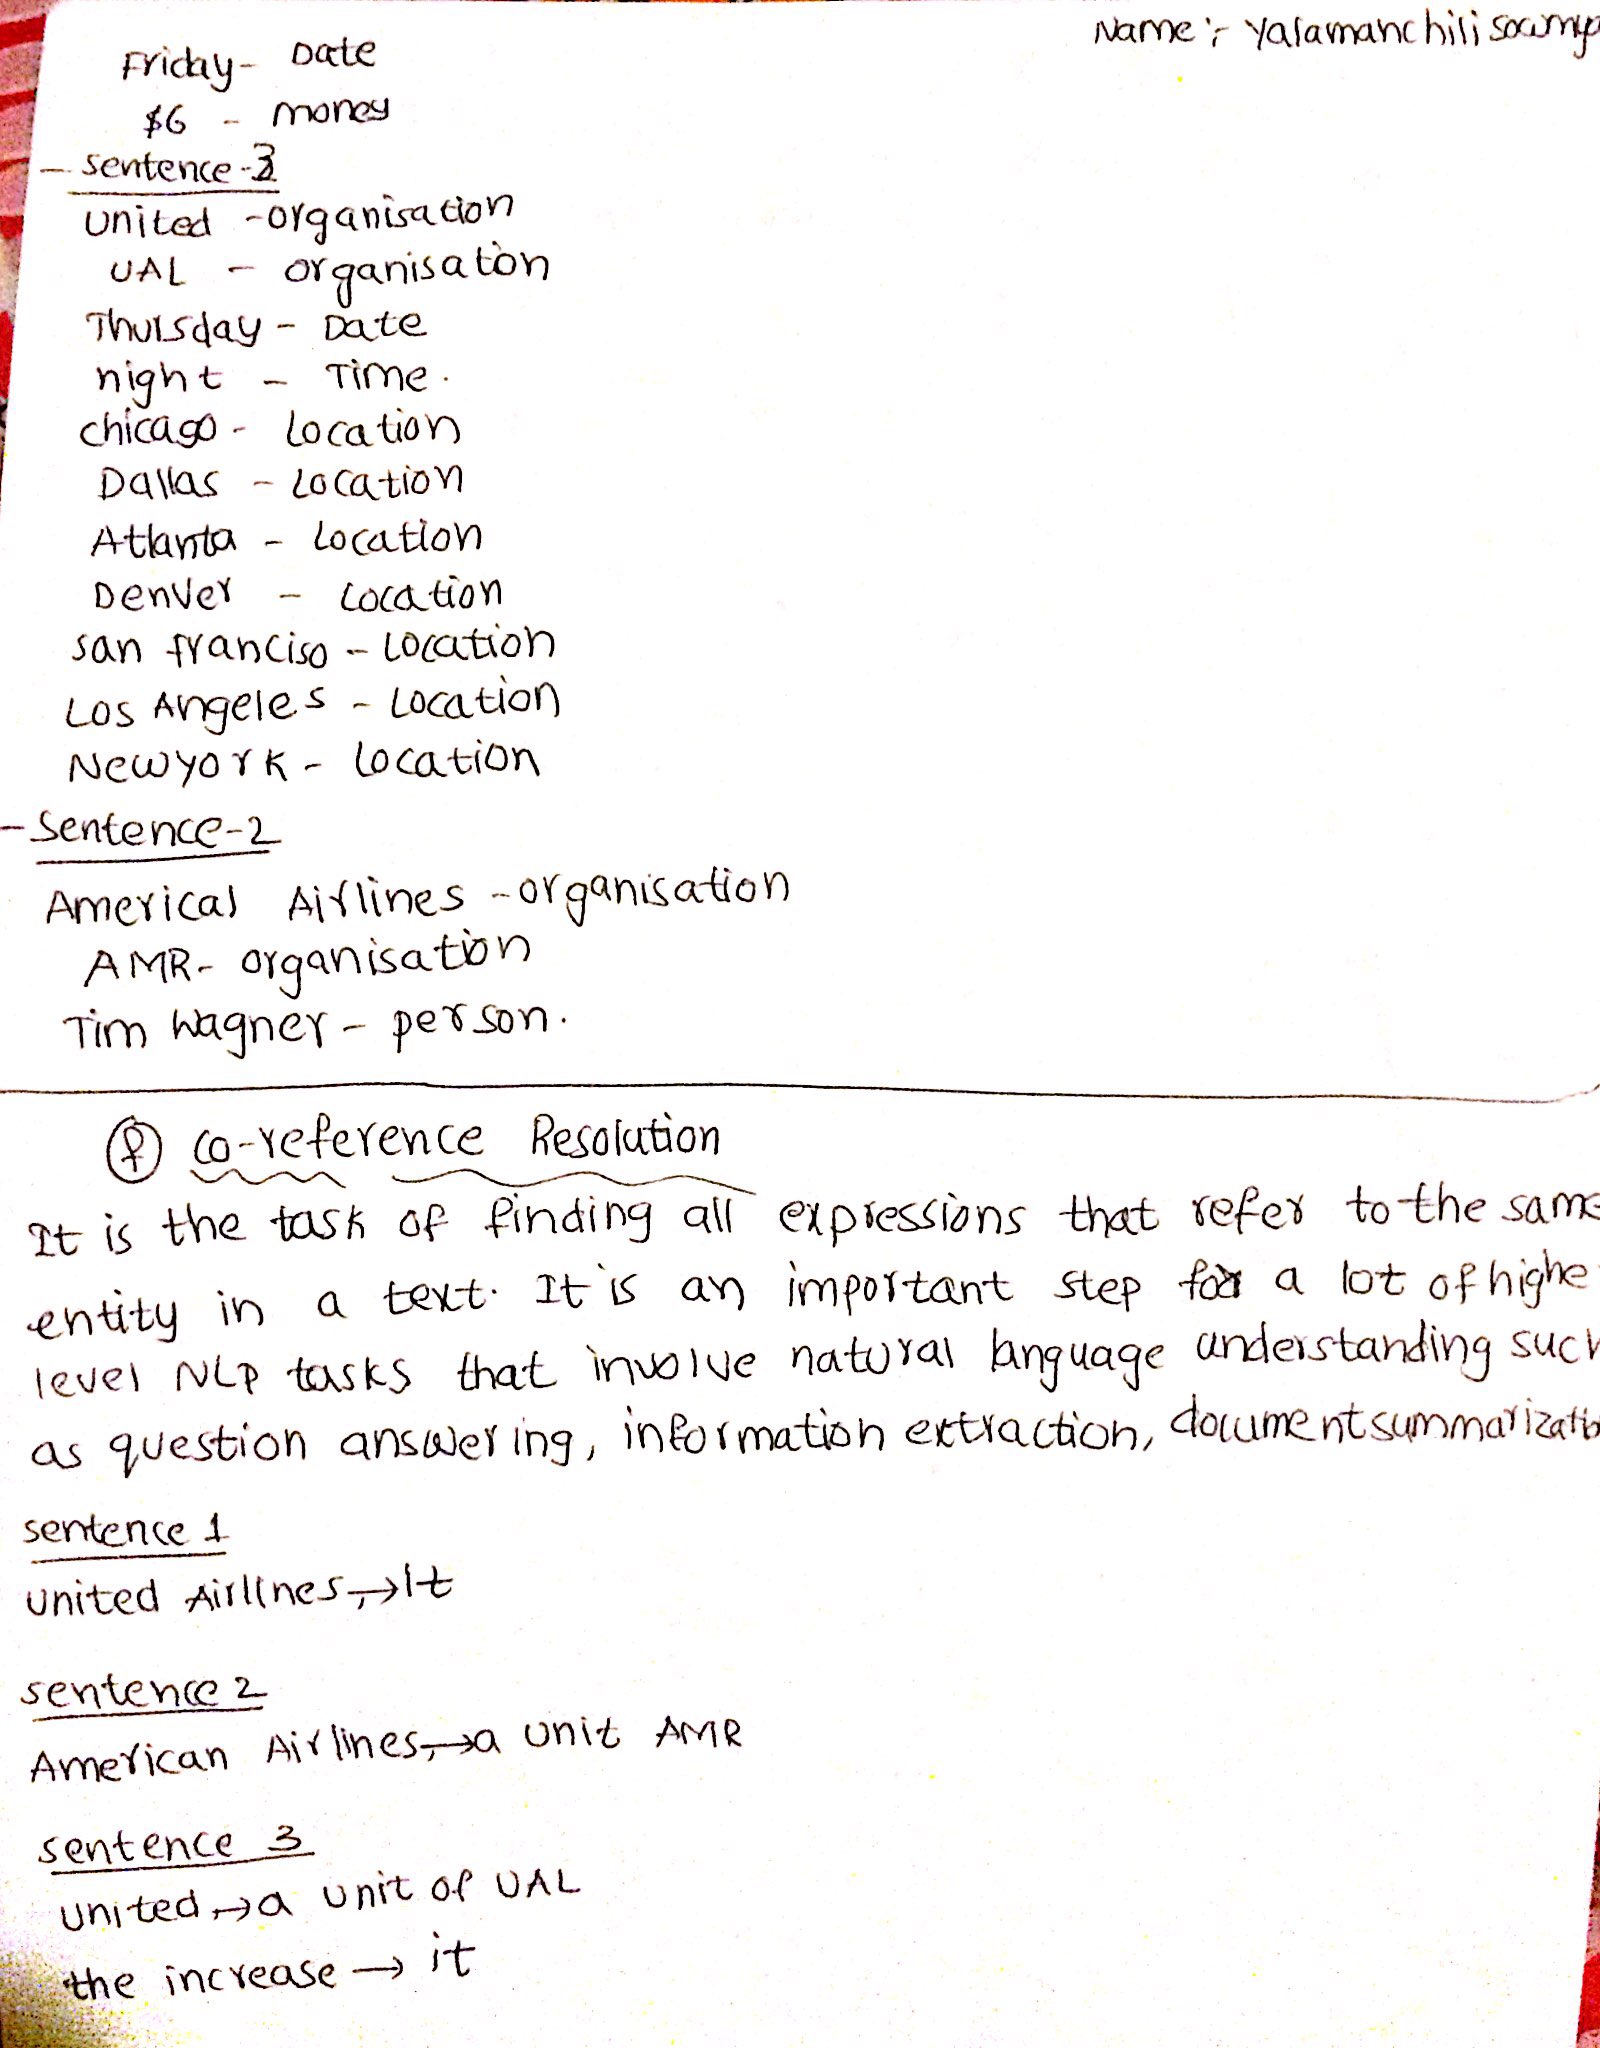 Name:- Yalamanchili Sowmy
Friday - Date
$6 - money
- Sentence-3
United - organisation
UAL - organisation
Thursday - Date
night - Time.
chicago - Location
Dallas - Location
Atlanta - Location
Denver - Location
san franciso - Location
Los Angeles - Location
Newyork - Location
- Sentence-2
Americal Airlines - organisation
AMR - organisation
Tim Wagner - person.
f co-reference Resolution
It is the task of finding all expressions that refer to the same
entity in a text. It is an important step for a lot of highe
level NLP tasks that involve natural language understanding such
as question answering, information extraction, document summarizatio
sentence 1
United Airlines, → It
sentence 2
American Airlines, → a unit AMR
sentence 3
United, → a unit of UAL
the increase → it